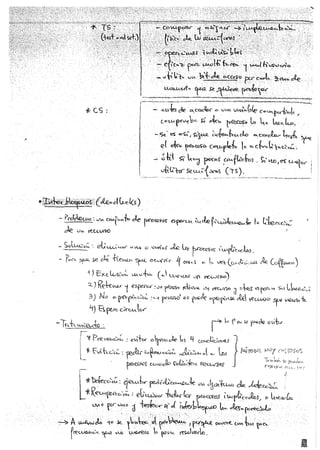 * TS :
(test and set.)
- comparar y asignar → implementación
física de los semáforos.
- operaciones indivisibles
- eficaz para multitarea y multiusuario
- utiliza un bit de acceso por cada zona de
memoria que se quiere proteger
* CS :
- antes de acceder a una variable compartida,
comprueba si otro proceso lo ha hecho.
- si es así, sigue intentando acceder hasta que
el otro proceso complete la actualización.
- útil si hay pocos conflictos. Si no, es mejor
utilizar semáforos (TS).
• Interbloqueos (deadlocks)
- Problema : un conjunto de procesos esperan indefinidamente la liberación
de un recurso
- Solución : eliminar uno o varios de los procesos implicados.
- Para que se dé tienen que ocurrir 4 cosas a la vez (condiciones de Coffman)
1) Exclusión mutua (al usar un recurso)
2) Retener y esperar : un proceso retiene un recurso y otros esperan su liberación
3) No apropiación : un proceso no puede apropiarse del recurso que necesita
4) Espera circular
- Tratamiento :
la 1ª no se puede evitar
* Prevención : evitar alguna de las 4 condiciones
* Evitación : pedir información adicional a los
procesos cuando soliciten recursos
métodos muy costosos
También se pueden
* Detección : ejecutar periódicamente un algoritmo de detección
* Recuperación : eliminar todos los procesos implicados, o hacerlo
uno por uno y testear si el interbloqueo ha desaparecido
→ A menudo no se plantea el problema, porque ocurre con tan poca
frecuencia que no merece la pena resolverlo.